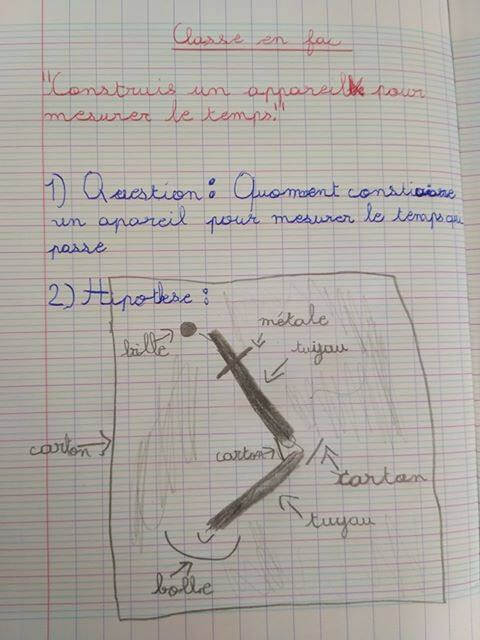 Classe en fac
"Construis un appareil pour
mesurer le temps."
1) Question : Quoment
un apareil pour mesurer le temps qui
passe
2) Hipotese :
métale
bille
tuyau
carton
carton
cartan
tuyau
bolle